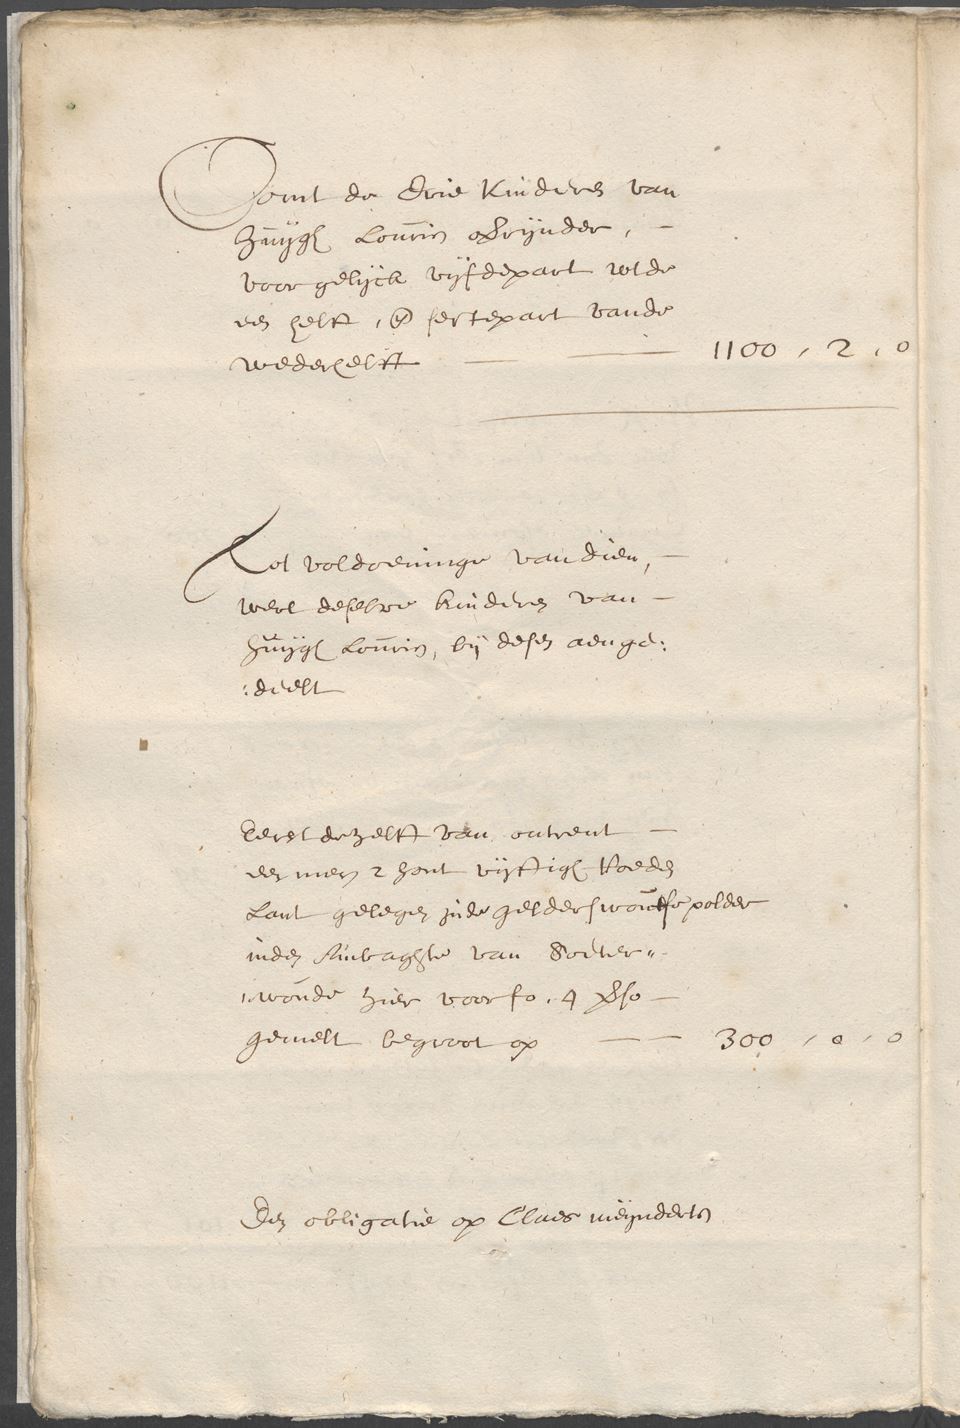 Comt de drie kinderen van
Huijgh Louris Schrijnder, —
voor gelijck vijfdepart wt de
een helft, en sestepart vande
wederhelft — — 1100 , 2 , 0
Tot voldoeninge van dien, —
wert deselve kinderen van —
Huijgh Louris, bij desen aenge:
:deelt
Eerst de helft van ontrent —
een mergen 2 hont vijftigh Roeden
Lant gelegen inde gelderswoutse polder
inden Ambaghte van Soeter"
"woude hier voor fo. 4
gemelt begroot op — — 300 , 0 , 0
Den obligatie op Claes meijnderts